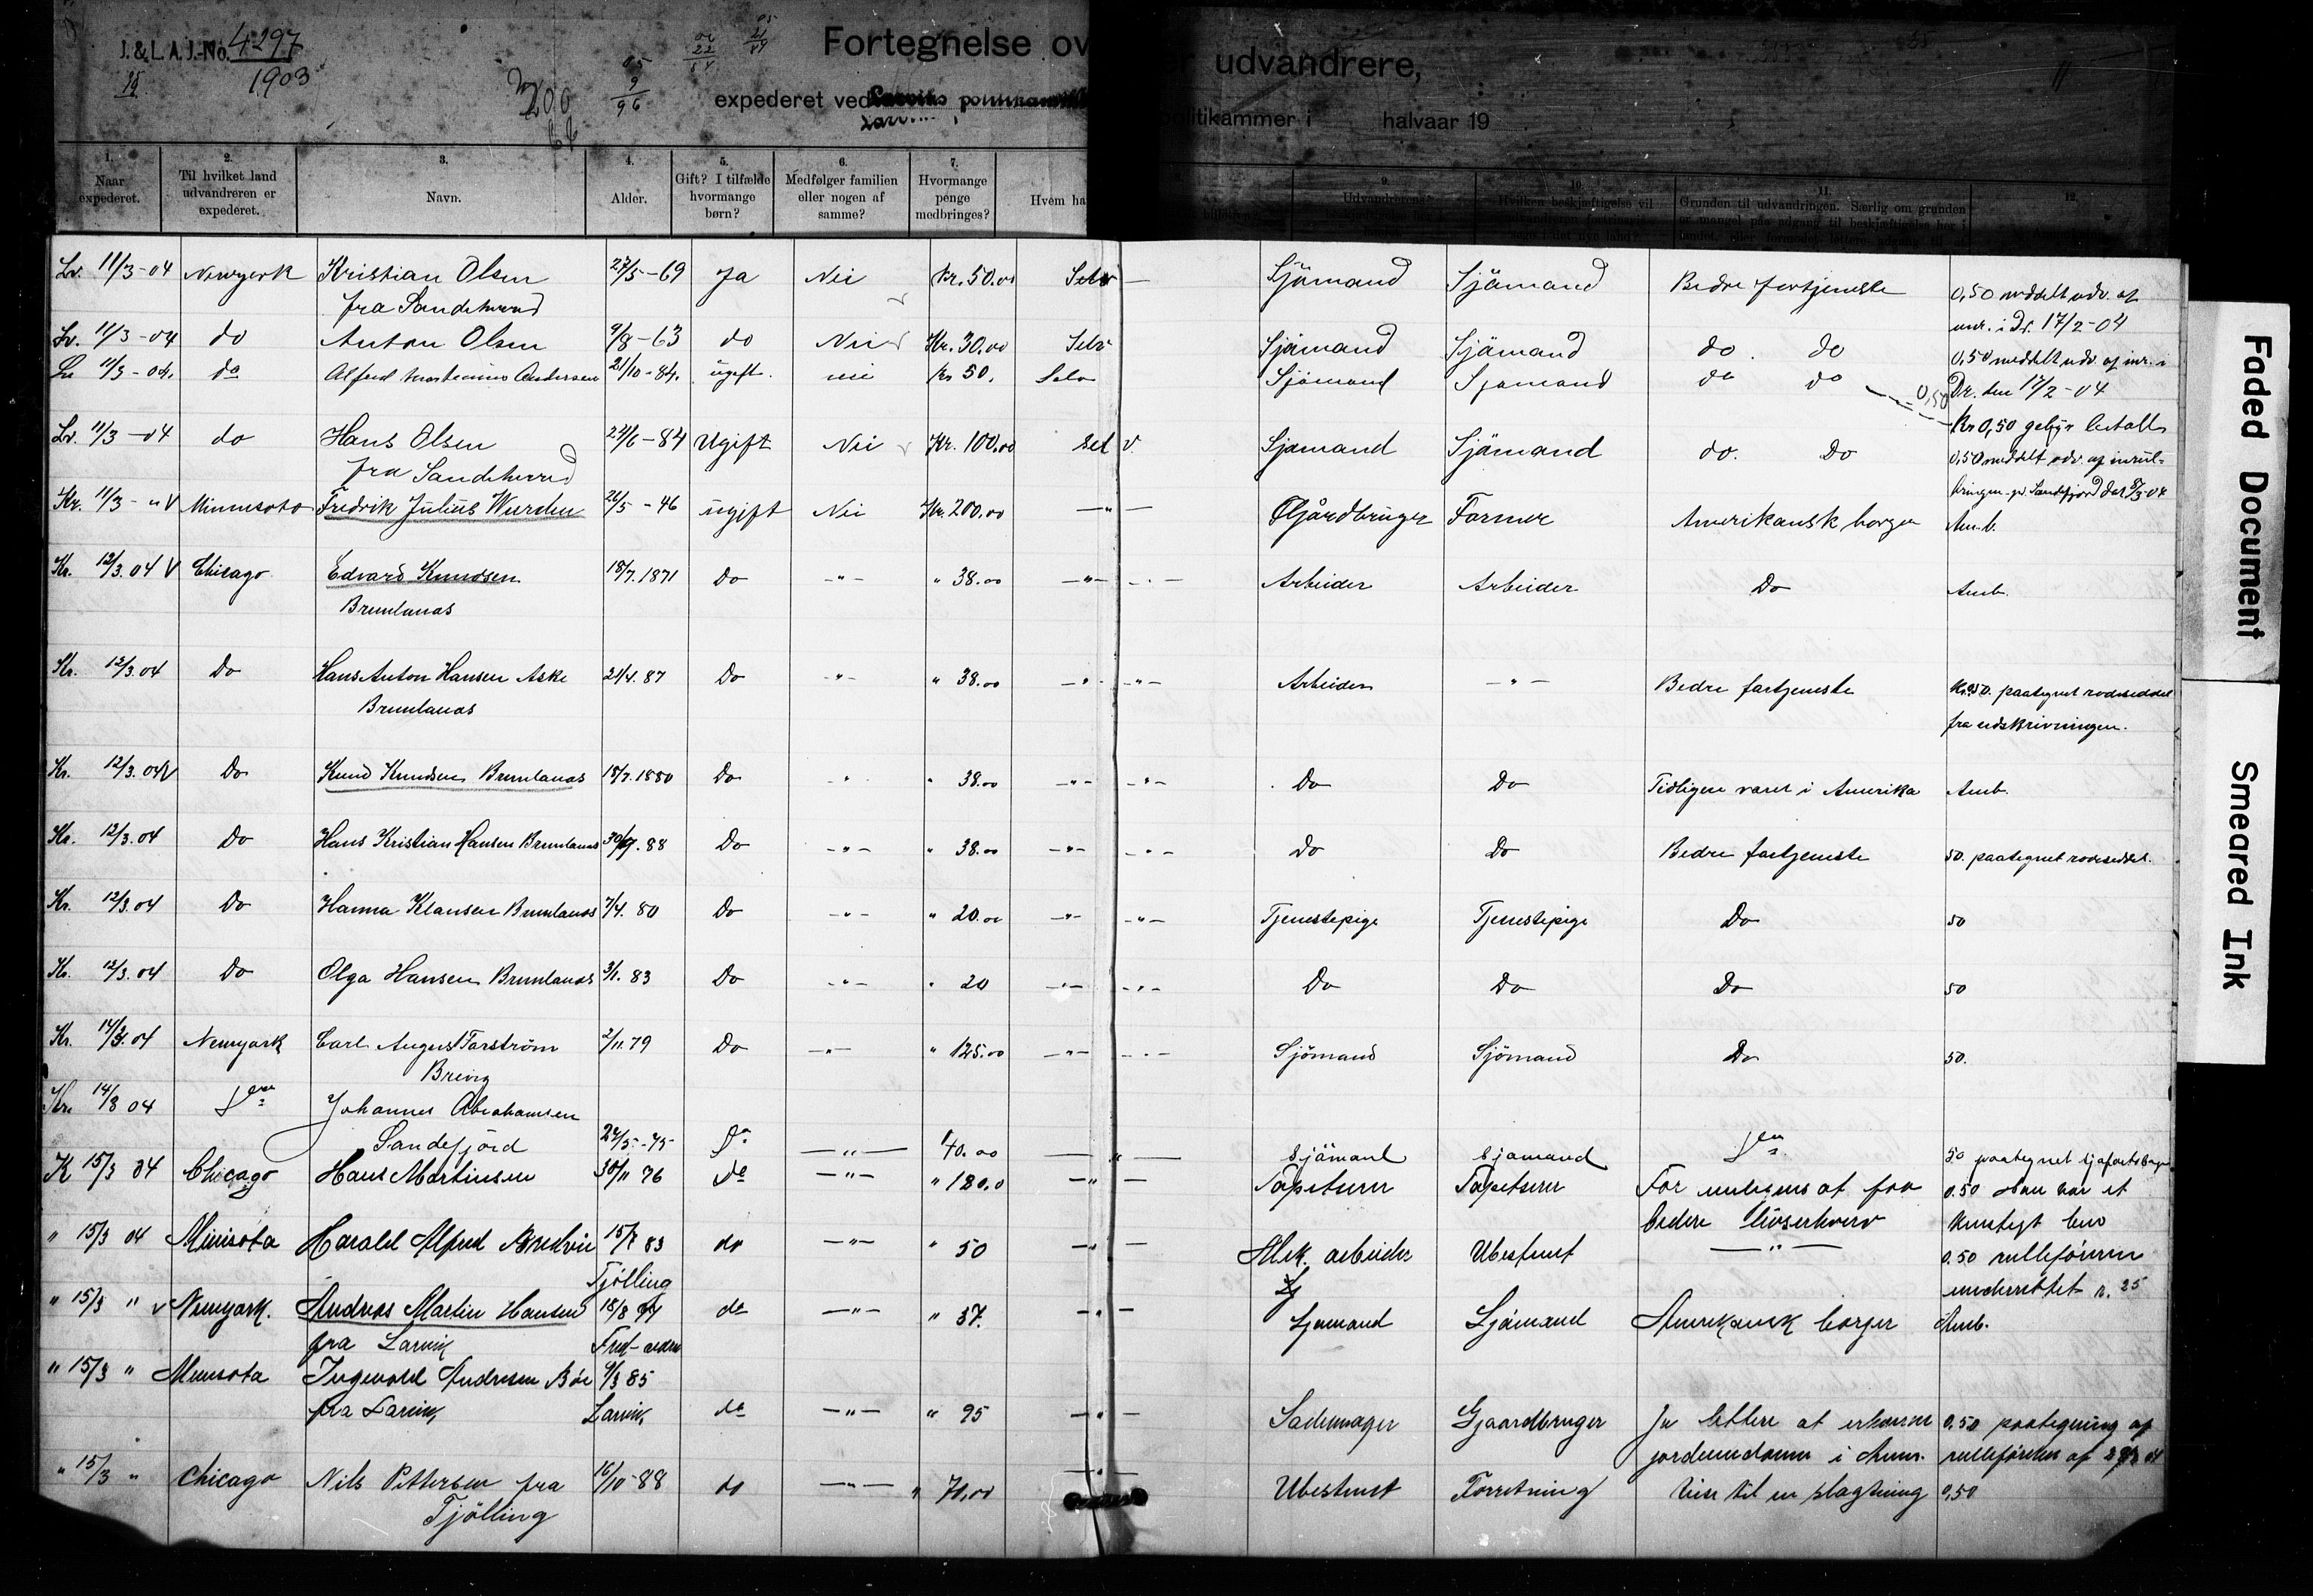 J. & L. A. J.-No. 4297
1903
200
9
96
Fortegnelse over udvandrere,
expederet ved politikammer i halvaar 19
1. Naar expederet.
2. Til hvilket land udvandreren er expederet.
3. Navn.
4. Alder.
5. Gift? I tilfælde hvormange børn?
6. Medfølger familien eller nogen af samme?
7. Hvormange penge medbringes?
Hvem ha
9. Udvandrerens
10. Hvilken beskjæftigelse vil
11. Grunden til udvandringen. Særlig om grunden er mangel paa adgang til beskjæftigelse her i landet, eller formodet lettere adgang til
12.
Lv. 11/3-04 Newyork Kristian Olsen 27/5-69 Ja Nei Kr. 50.00 Selv — Sjömand Sjömand Bedre fortjeneste 0,50 meddelt udv. af
fra Sandeherred inr. i Dr. 17/2-04
Lv. 11/3-04 do Anton Olsen 9/8-63 do Nei Kr. 30,00 Selv Sjömand Sjömand do. do 0,50 meddelt udv. af inr. i
Lv 11/3-04. do Alfred Andersen 21/10-84. ugift. nei Kr 50. Selv Sjömand Sjömand do do 0,50 Dr. den 17/2-04
Kr 0,50 gebyr betalt
Lv. 11/3-04 do Hans Olsen 22/6-84 Ugift Nei Kr. 100,00 Selv Sjömand Sjömand do. Do 0,50 meddelt udv. af inrul-
fra Sandeherred
Kr. 11/3-" V Minnesota Fredrik Julius 26/5-46 ugift Nei Kr. 200.00 —"— Gårdbruger Farmer Amerikansk borger Am.b.
Kr. 12/3.04 V Chicago Edvard Knudsen 18/7.1871 Do -"- " 38.00 —"— Arbeider Arbeider Do Amb.
Brunlanes
Kr. 12/3.04 Do Hans Anton Hansen Aske 21/4.87 Do -"- " 38.00 —"— Arbeider —"— Bedre fortjeneste Kr. 50. paategnet rodeseddel
Brunlanes fra udskrivningen.
Kr. 12/3.04 V Do Knud Knudsen Brunlanes 18/7.1880 Do " " 38.00 —"— Do Do Tidligere været i Amerika Amb.
Kr. 12/3.04 Do Hans Kristian Hansen Brunlanes 30/9.88 Do —"— " 38.00 —"— Do Do Bedre fortjeneste 50. paategnet rodeseddel.
Kr. 12/3.04 Do Hanna Klausen Brunlanes 7/4.80 Do —"— " 20.00 —"— Tjenestepige Tjenestepige Do 50
Kr. 12/3.04 Do Olga Hansen Brunlanes 3/1.83 Do —"— " 20 —"— Do Do Do 50
Kr. 14/3.04 Newyork Carl August Forström 2/11.79 Do —"— " 125.00 —"— Sjömand Sjömand Do 50.
Brevig
Kr. 14/3 04 Do Johannes Abrahamsen
Sandefjord 24/5-75 Do —"— 40.00 —"— Sjömand Sjömand Do 50 paategnet
K 15/3 04 Chicago Hans Martinsen 30/11 76 do —"— " 180.0 —"— Tapetserer Tapetserer For muligens at faa 0.50 Han har et
bedre livserhverv kunstigt ben
" 15/3 04 Minisota Harald Alfred 15/7 83 do —"— " 50 —"— Mek. arbeider Ubestemt —"— 0.50 rulleföreren
Tjölling underrettet n. 25
" 15/3 " v Newyork. Andreas Martin Hansen 18/8 do —"— " 37. —"— Sjömand Sjömand Amerikansk borger Amb.
fra Larvik
" 15/3 " Minisota Ingevald Andresen Böe 9/3 85
fra Larvik, Larvik, do —"— " 95 —"— Sadelmager Gjaardbruger Ja lettere at erhverve 0.50 paategning af
jordeiendomme i Amr. rulleföreren af
" 15/3 " Chicago Nils Pettersen fra 16/10-88 do —"— " 70,00 —"— Ubestemt Forretning hen til en slægtning 0,50
Tjölling
Faded Document
Smeared Ink